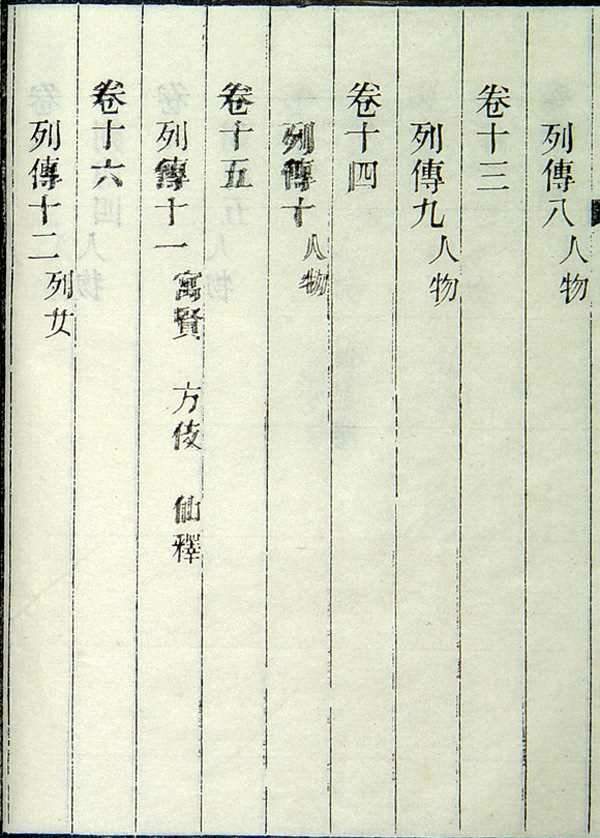 列傳八 人物
卷十三
列傳九 人物
卷十四
列傳十 人物
卷十五
列傳十一 寓賢 方伎 仙釋
卷十六
列傳十二 列女